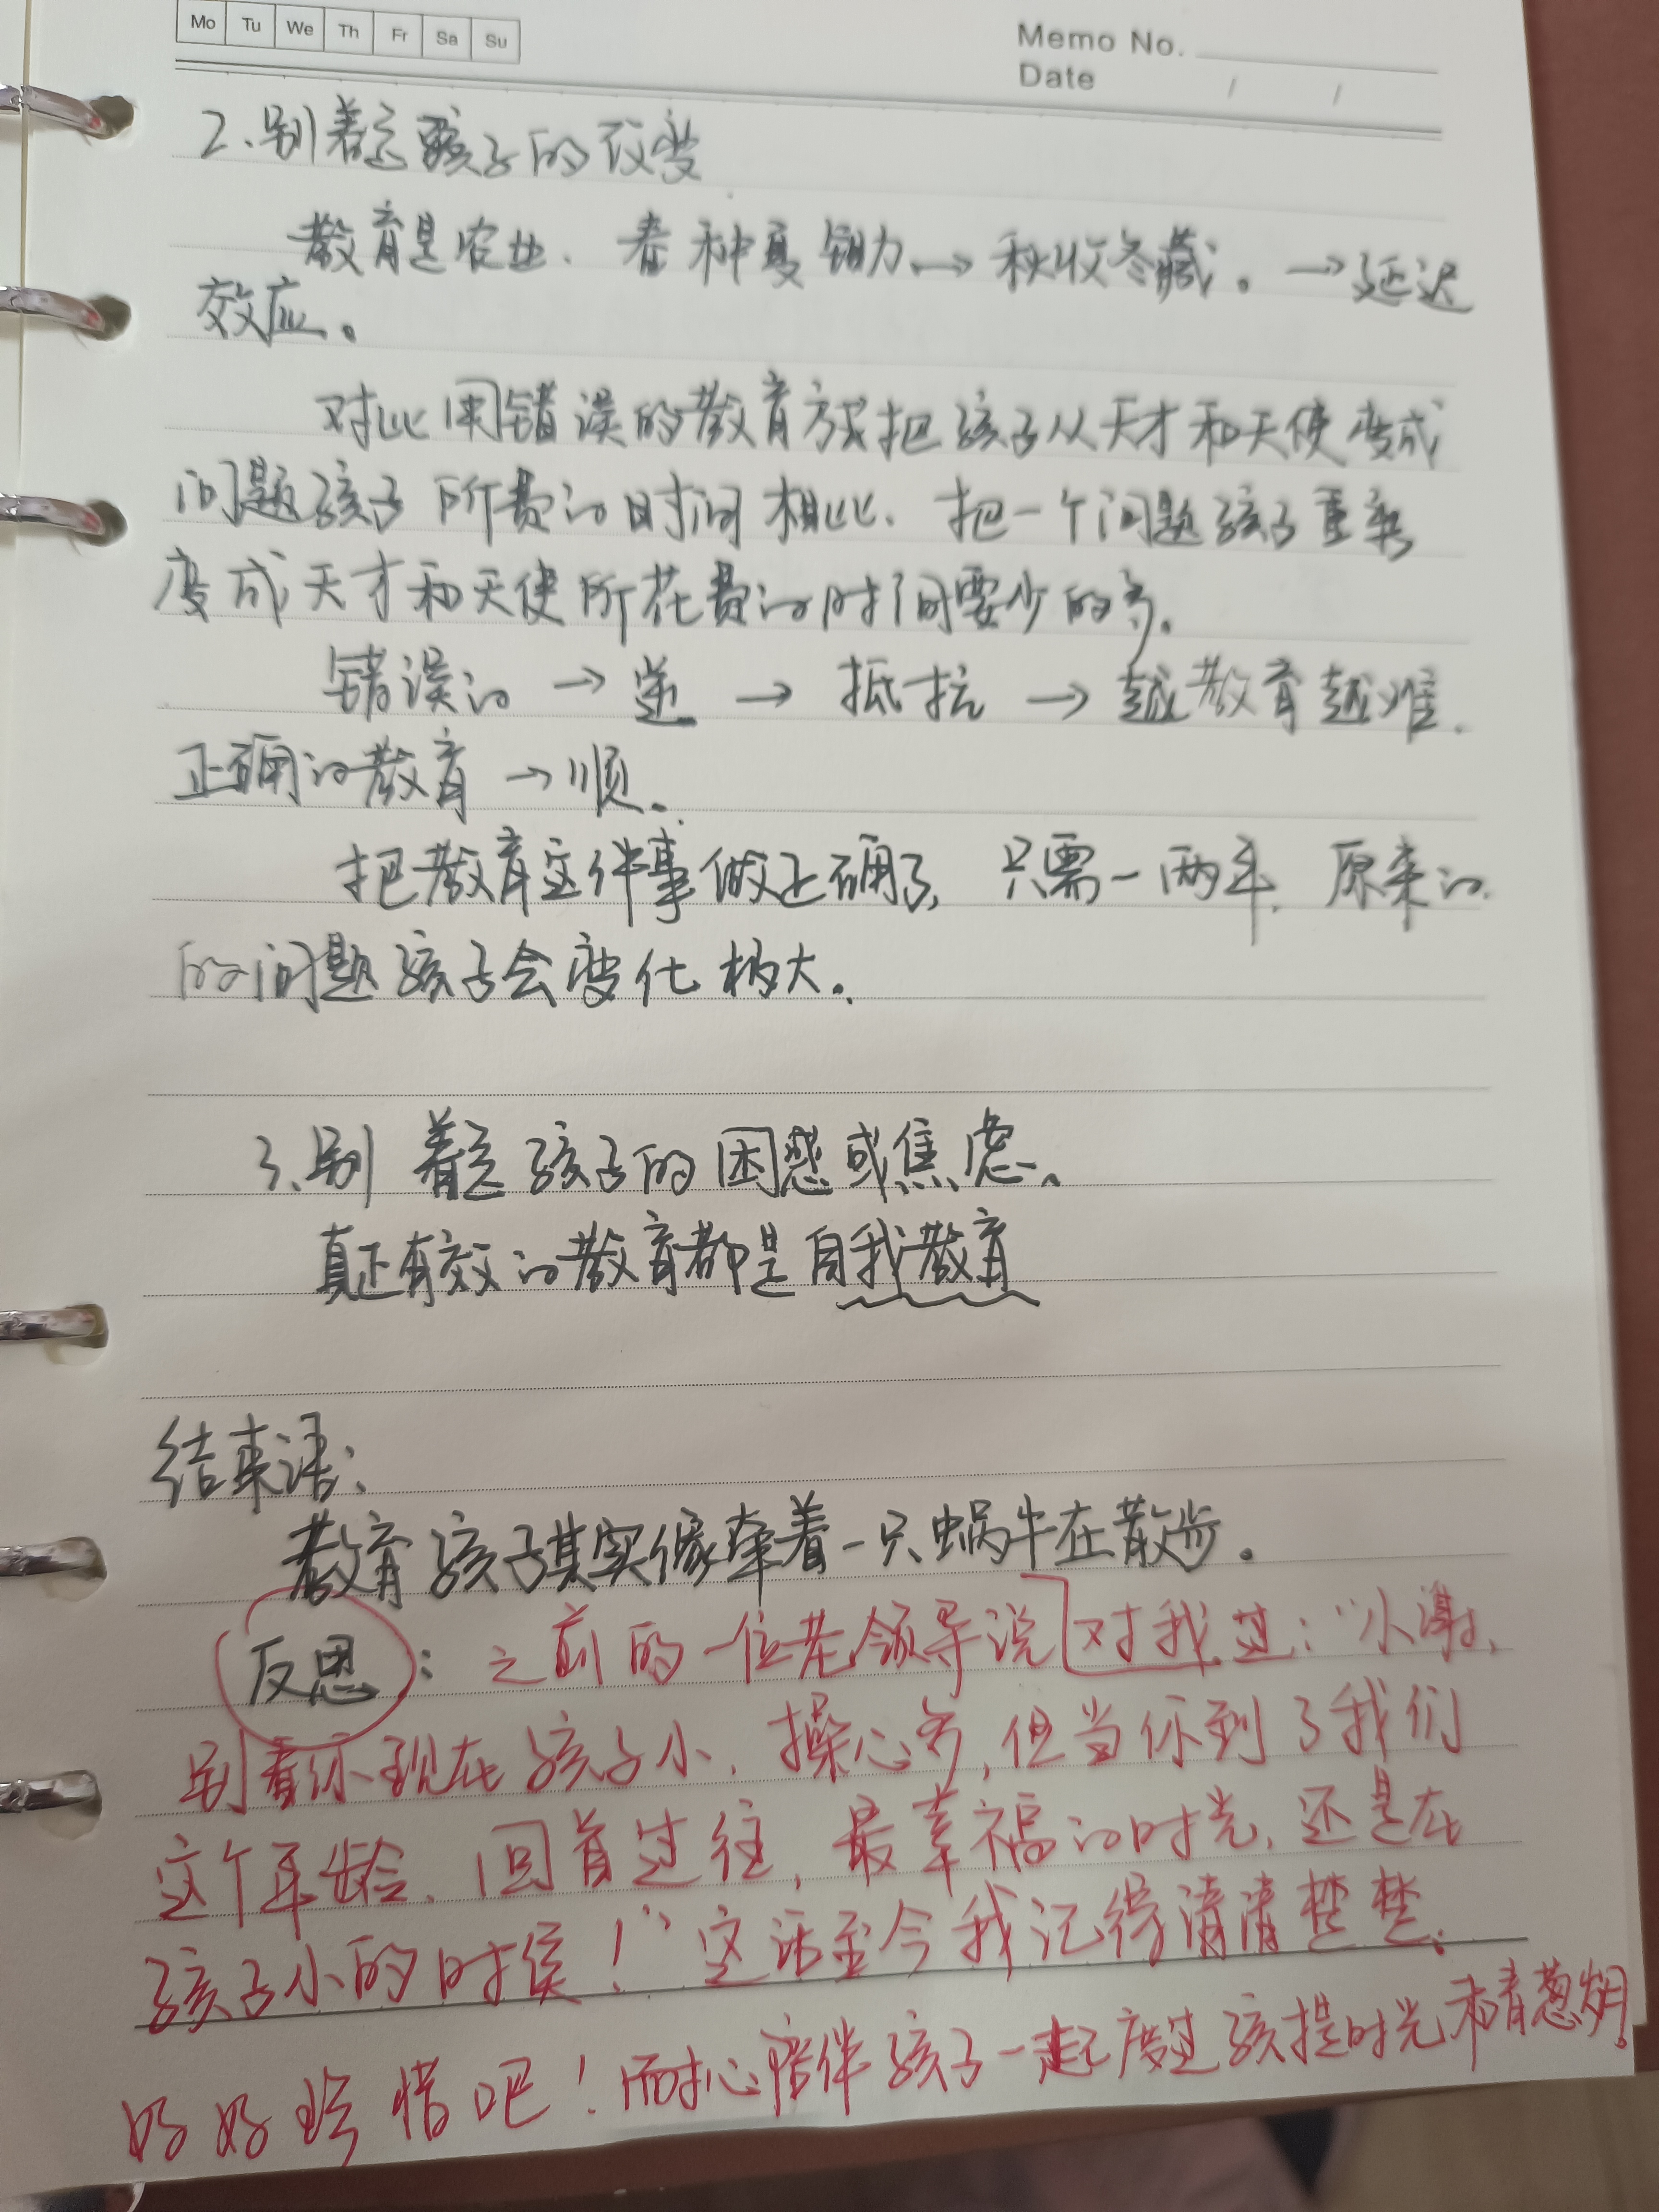 Mo Tu We Th Fr Sa Su
Memo No.
Date / /
2、别着急孩子的改变
教育是农业、春种夏锄→秋收冬藏。→延迟
效应。
对比用错误的教育方式把孩子从天才和天使变成
问题孩子所费的时间相比、把一个问题孩子重新
变成天才和天使所花费的时间要少的多。
错误的→逆→抵抗→越教育越难.
正确的教育→顺。
把教育这件事做正确了,只需一两年.原来的
的问题孩子会变化极大.
3、别着急孩子的困惑或焦虑。
真正有效的教育都是自我教育
结束语:
教育孩子其实像牵着一只蜗牛在散步。
反思:之前的一位老领导说对我过:“小谢,
别看你现在孩子小,操心多,但当你到了我们
这个年龄、回首过往,最幸福的时光,还是在
孩子小的时侯!”这话至今我记得清清楚楚.
好好珍惜吧!耐心陪伴孩子一起度过孩提时光和青葱岁月